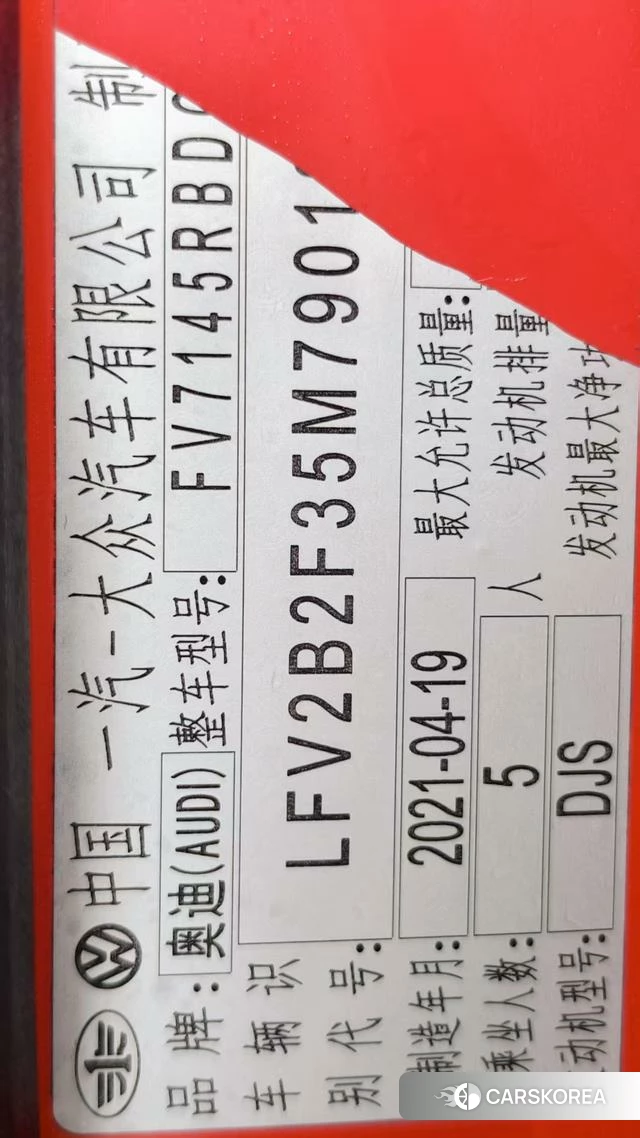 中国 一汽-大众汽车有限公司 制
品牌: 奥迪(AUDI) 整车型号: FV7145RBD
车辆识别代号: LFV2B2F35M7901
制造年月: 2021-04-19 最大允许总质量:
乘坐人数: 5 人 发动机排量
发动机型号: DJS 发动机最大净功
CARSKOREA